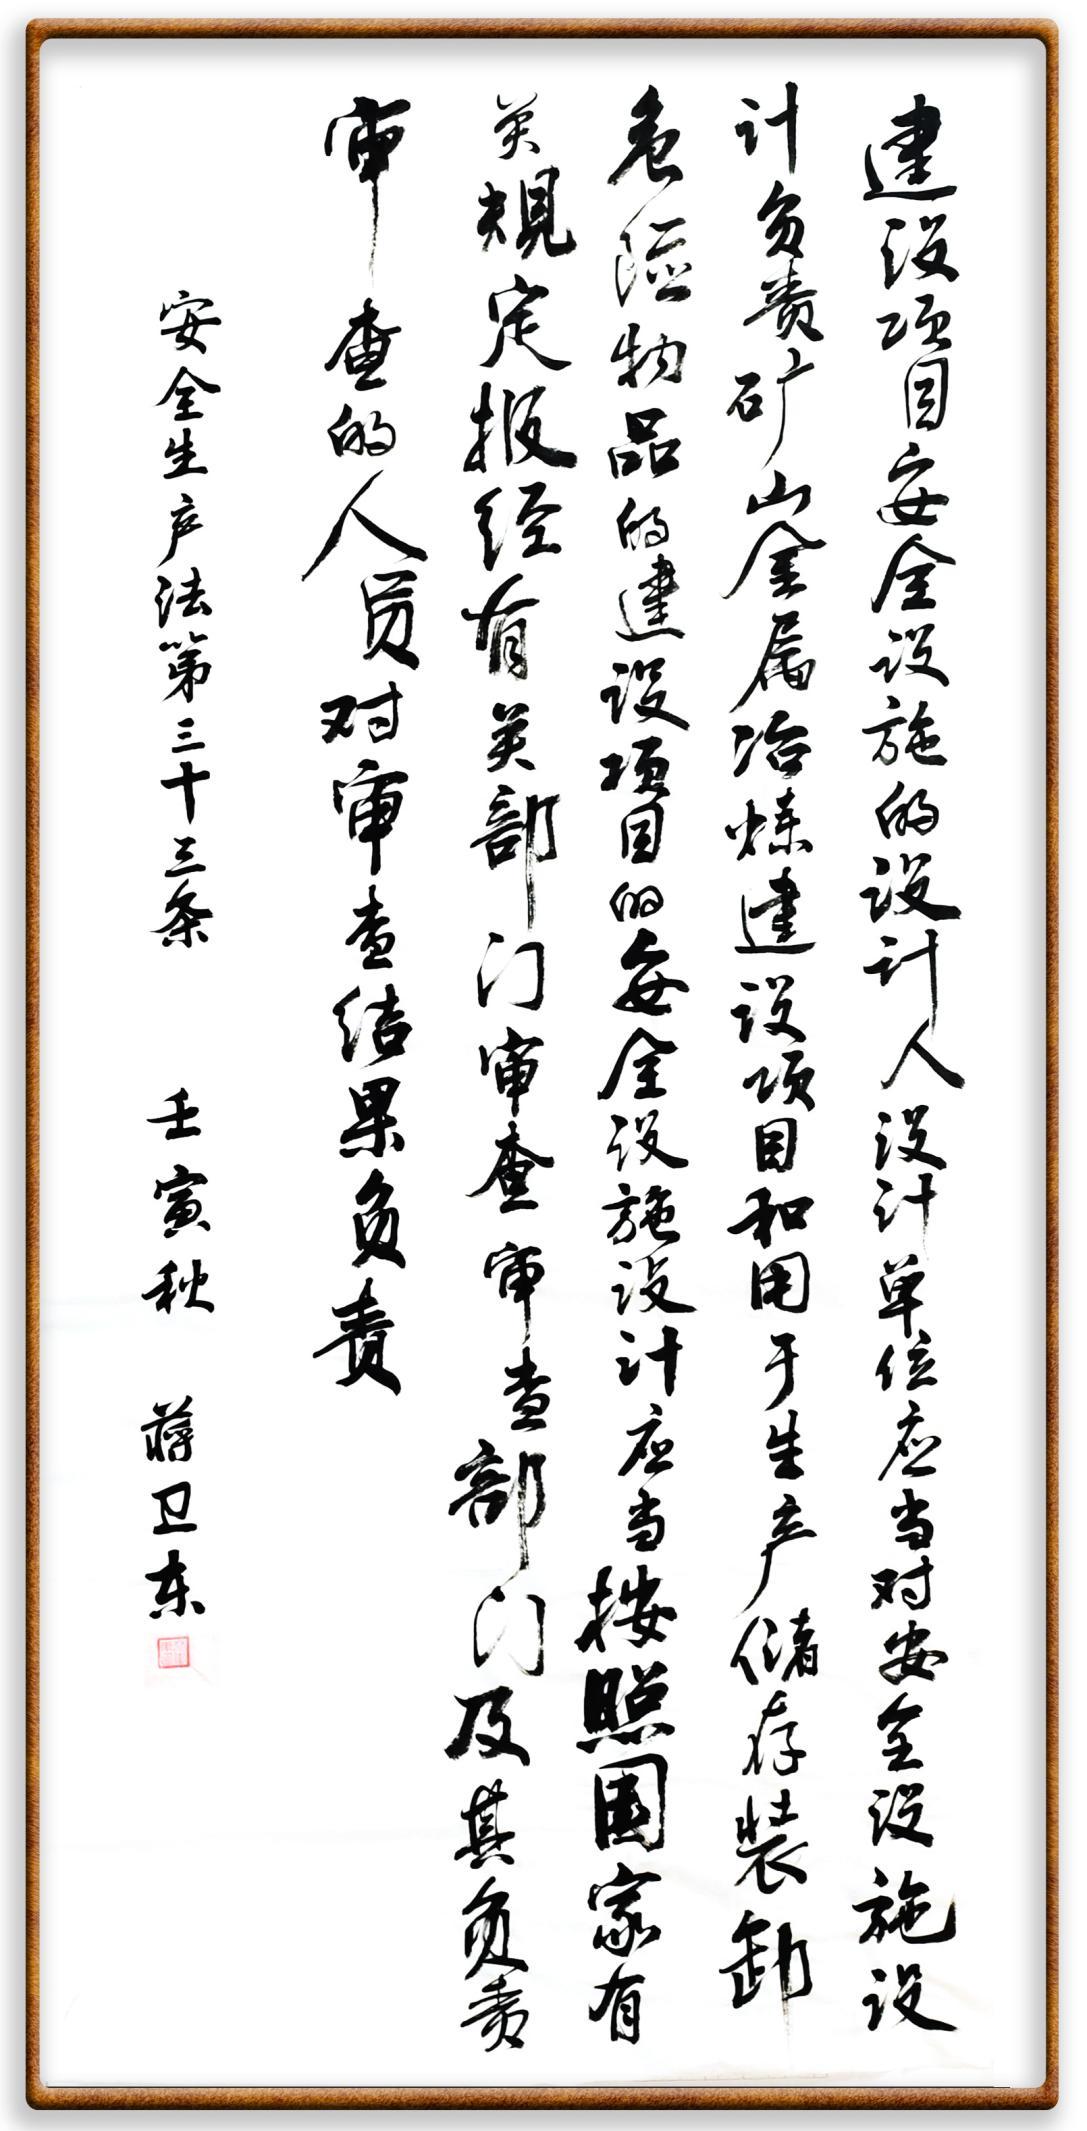 建设项目安全设施的设计人设计单位应当对安全设施设
计负责矿山金属冶炼建设项目和用于生产储存装卸
危险物品的建设项目的安全设施设计应当按照国家有
关规定报经有关部门审查审查部门及其负责
审查的人员对审查结果负责
安全生产法第三十三条 壬寅秋 蒋卫东